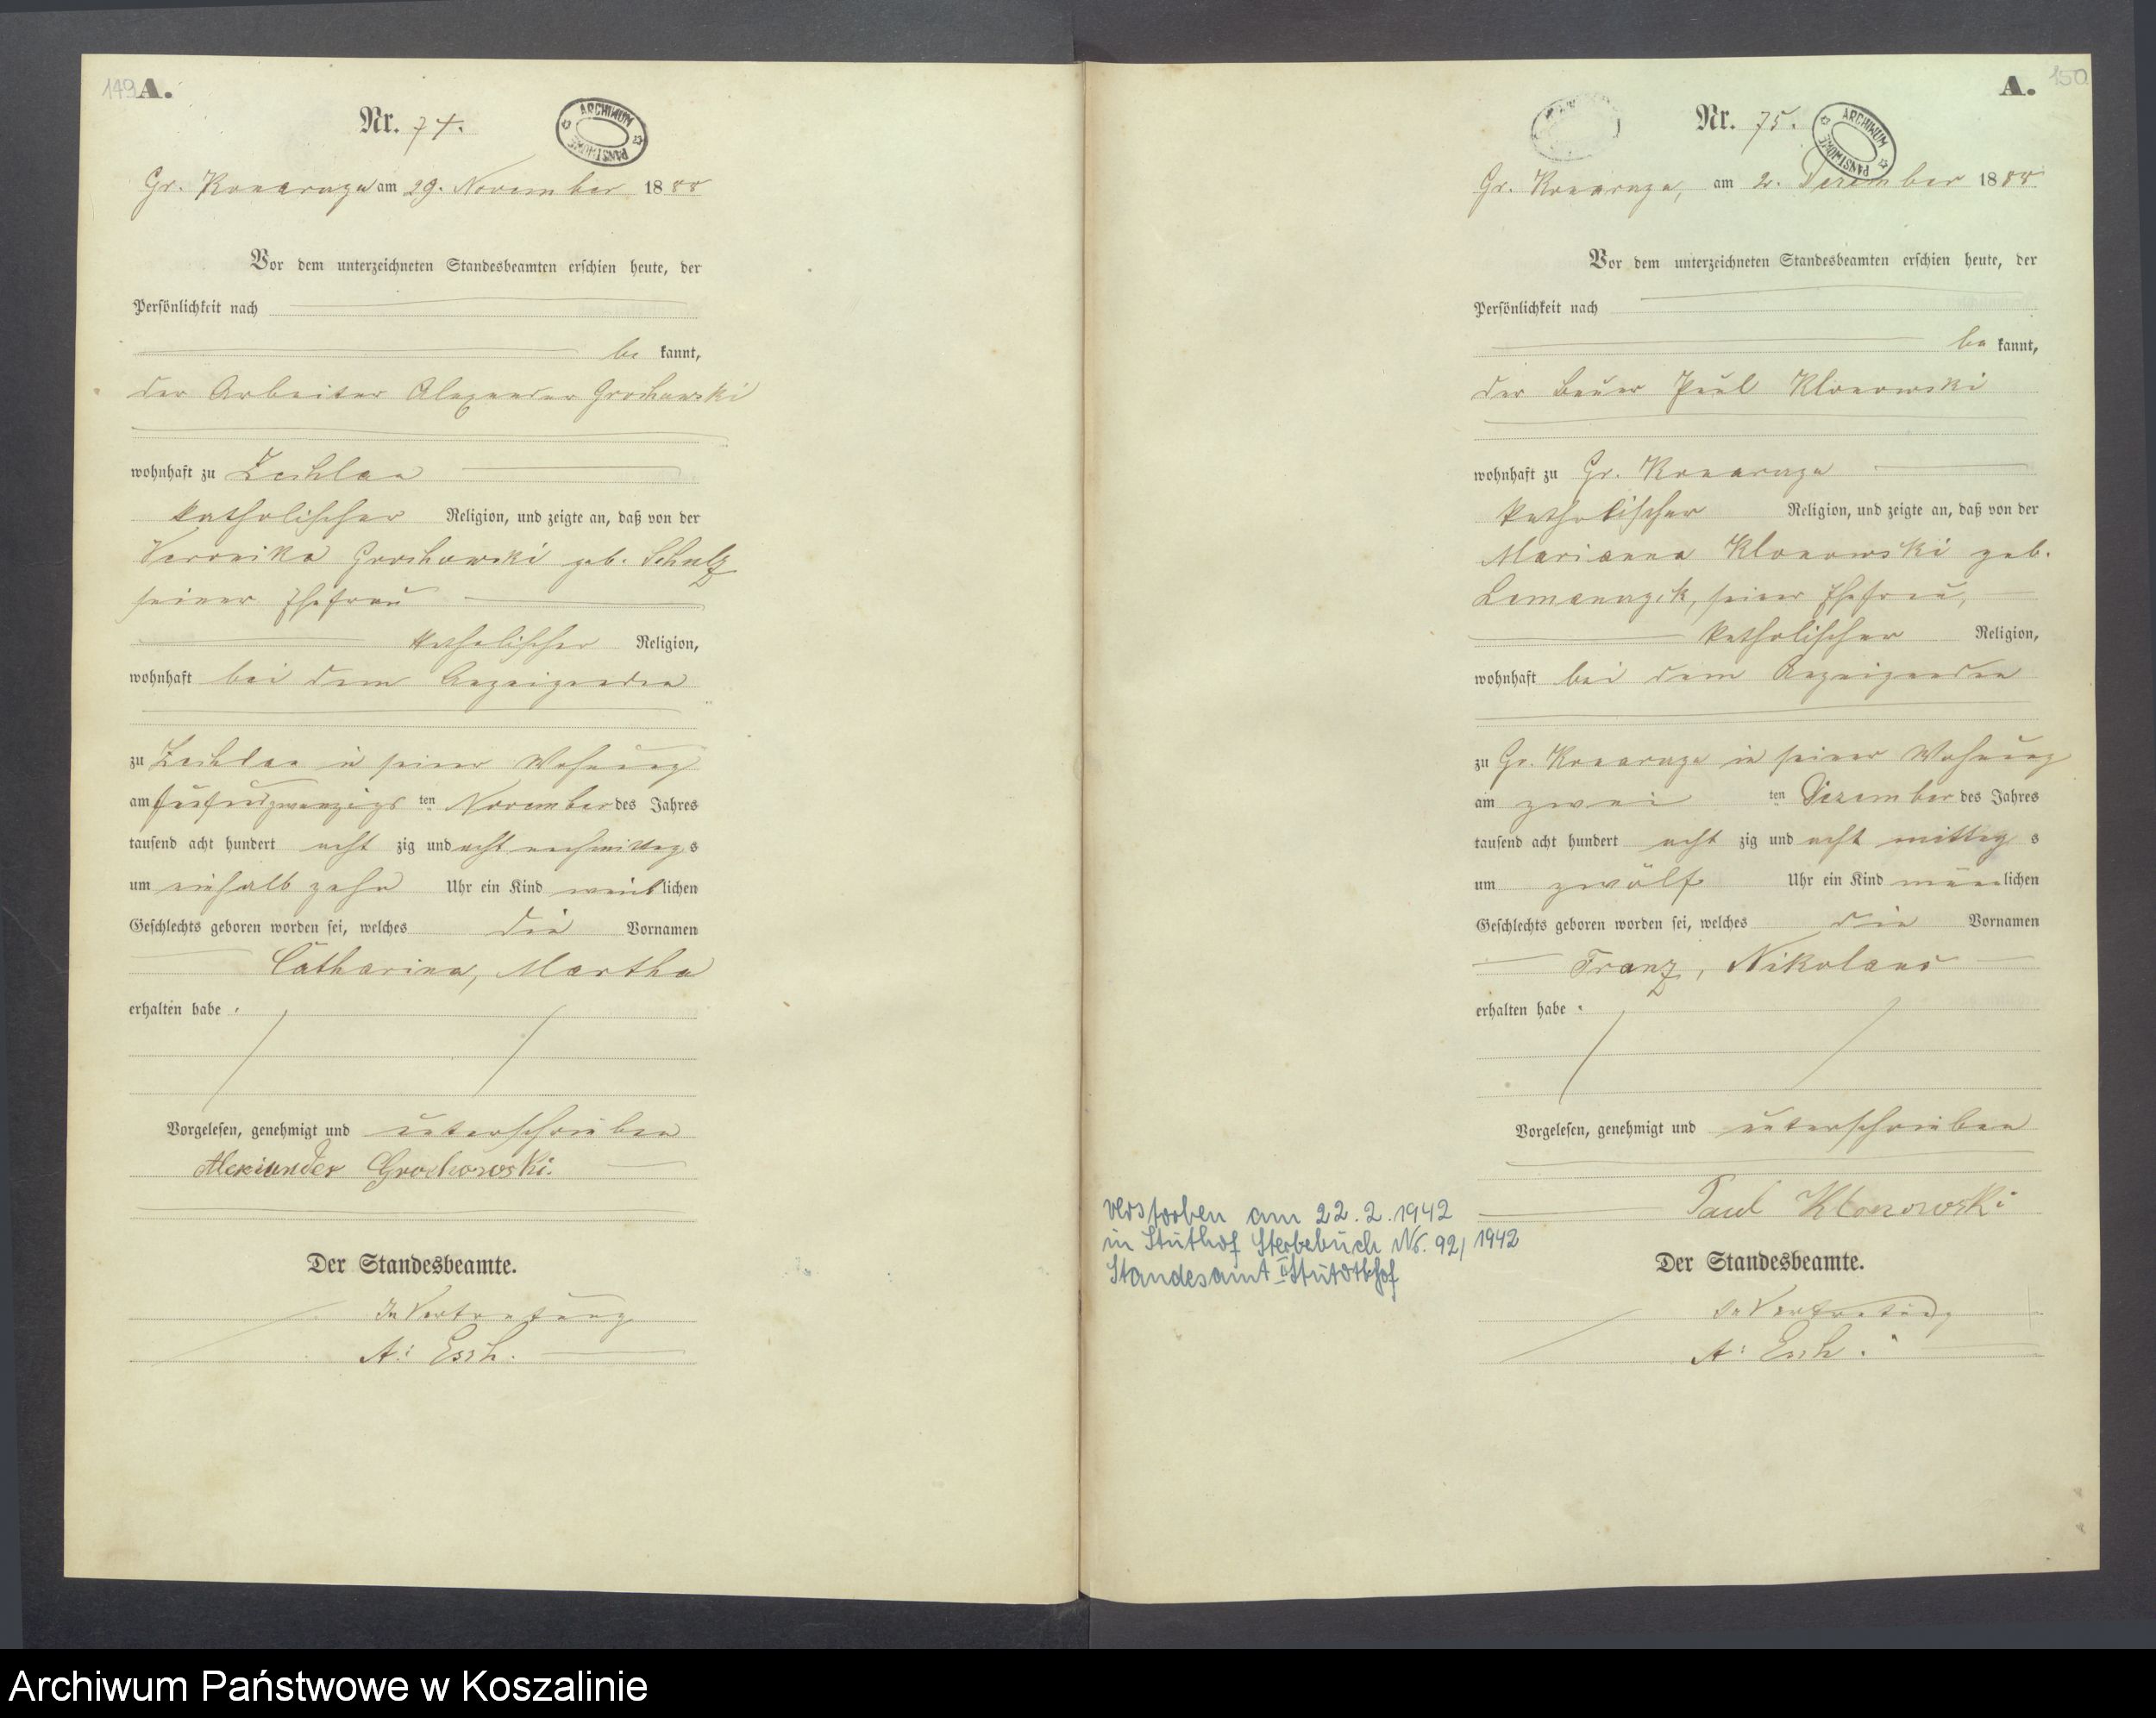 149 A.
Nr. 74.
ARCHIWUM PAŃSTWOWE
Gr. Konarczyn am 29. November 1888
Vor dem unterzeichneten Standesbeamten erschien heute, der
Persönlichkeit nach
be kannt,
der Arbeiter Alexander Grochowski
wohnhaft zu Zechlau
katholischer Religion, und zeigte an, daß von der
Veronika Grochowski geb. Schulz
seiner Ehefrau
katholischer Religion,
wohnhaft bei dem Anzeigenden
zu Zechlau in seiner Wohnung
am fünfundzwanzigs ten November des Jahres
tausend acht hundert acht zig und acht nachmittag s
um einhalb zehn Uhr ein Kind weiblichen
Geschlechts geboren worden sei, welches die Vornamen
Catharina, Martha
erhalten habe.
Vorgelesen, genehmigt und unterschrieben
Alexiander Grochowski.
Der Standesbeamte.
In Vertretung
A. Esch.
A. 150
Nr. 75.
ARCHIWUM PAŃSTWOWE
Gr. Konarczyn, am 2. Dezember 1888
Vor dem unterzeichneten Standesbeamten erschien heute, der
Persönlichkeit nach
be kannt,
der Bauer Paul Klonowski
wohnhaft zu Gr. Konarczyn
katholischer Religion, und zeigte an, daß von der
Marianna Klonowski geb.
Lemanczik, seiner Ehefrau,
katholischer Religion,
wohnhaft bei dem Anzeigenden
zu Gr. Konarczyn in seiner Wohnung
am zwei ten Dezember des Jahres
tausend acht hundert acht zig und acht mittag s
um zwölf Uhr ein Kind männlichen
Geschlechts geboren worden sei, welches die Vornamen
Franz, Nikolaus
erhalten habe.
Vorgelesen, genehmigt und unterschrieben
Paul Klonowski
verstorben am 22.2.1942
in Stuthof Sterbebuch Nr. 92/1942
Standesamt II Stutthof
Der Standesbeamte.
In Vertretung
A. Esch.
Archiwum Państwowe w Koszalinie